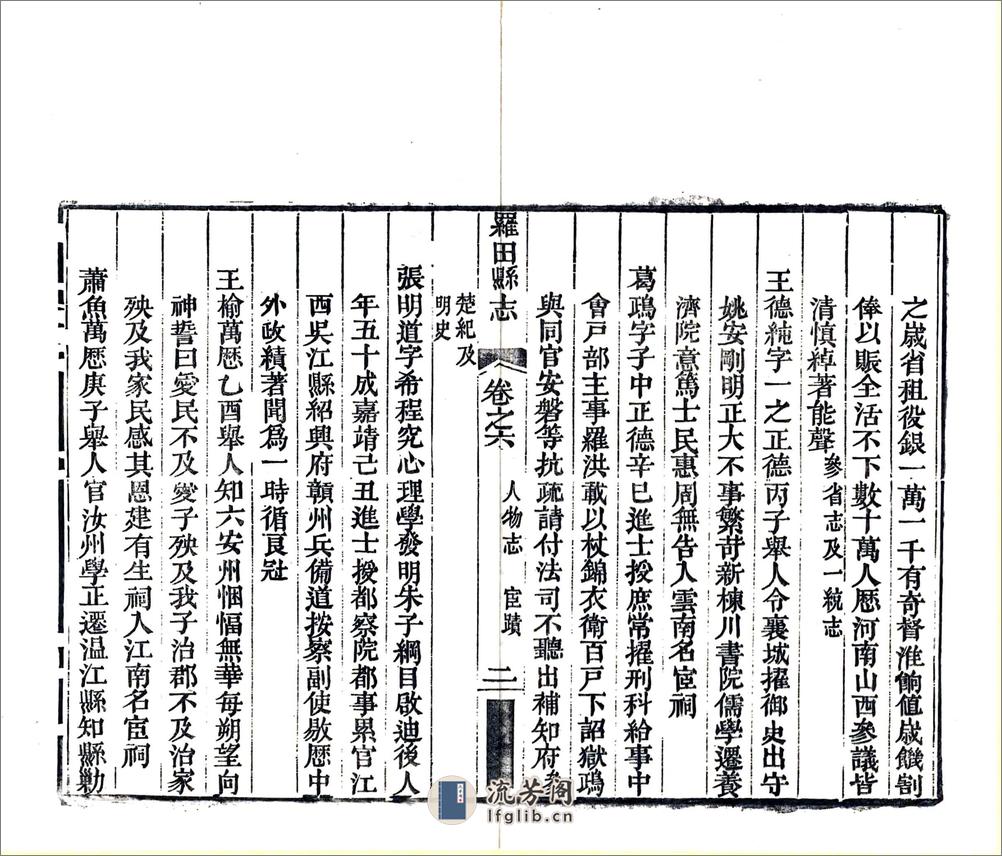 之歲省租役銀一萬一千有奇督淮餉値歲饑割
俸以賑全活不下數十萬人厯河南山西參議皆
清慎綽著能聲參省志及一統志
王德純字一之正德丙子舉人令襄城擢御史出守
姚安剛明正大不事繁苛新棟川書院儒學遷養
濟院意篤士民惠周無告入雲南名宦祠
葛鴊字子中正德辛巳進士授庶常擢刑科給事中
會戸部主事羅洪載以杖錦衣衛百戸下詔獄鴊
與同官安磐等抗疏請付法司不聽出補知府參
楚紀及
明史
羅田縣志
卷之六
人物志
宦蹟
二
張明道字希程究心理學發明朱子綱目啟迪後人
年五十成嘉靖己丑進士授都察院都事累官江
西吳江縣紹興府贛州兵備道按察副使敭歷中
外政績著聞爲一時循良冠
王榆萬厯乙酉舉人知六安州悃愊無華每朔望向
神誓曰愛民不及愛子殃及我子治郡不及治家
殃及我家民感其恩建有生祠入江南名宦祠
蕭魚萬厯庚子舉人官汝州學正遷溫江縣知縣勦
流芳阁
lfglib.cn